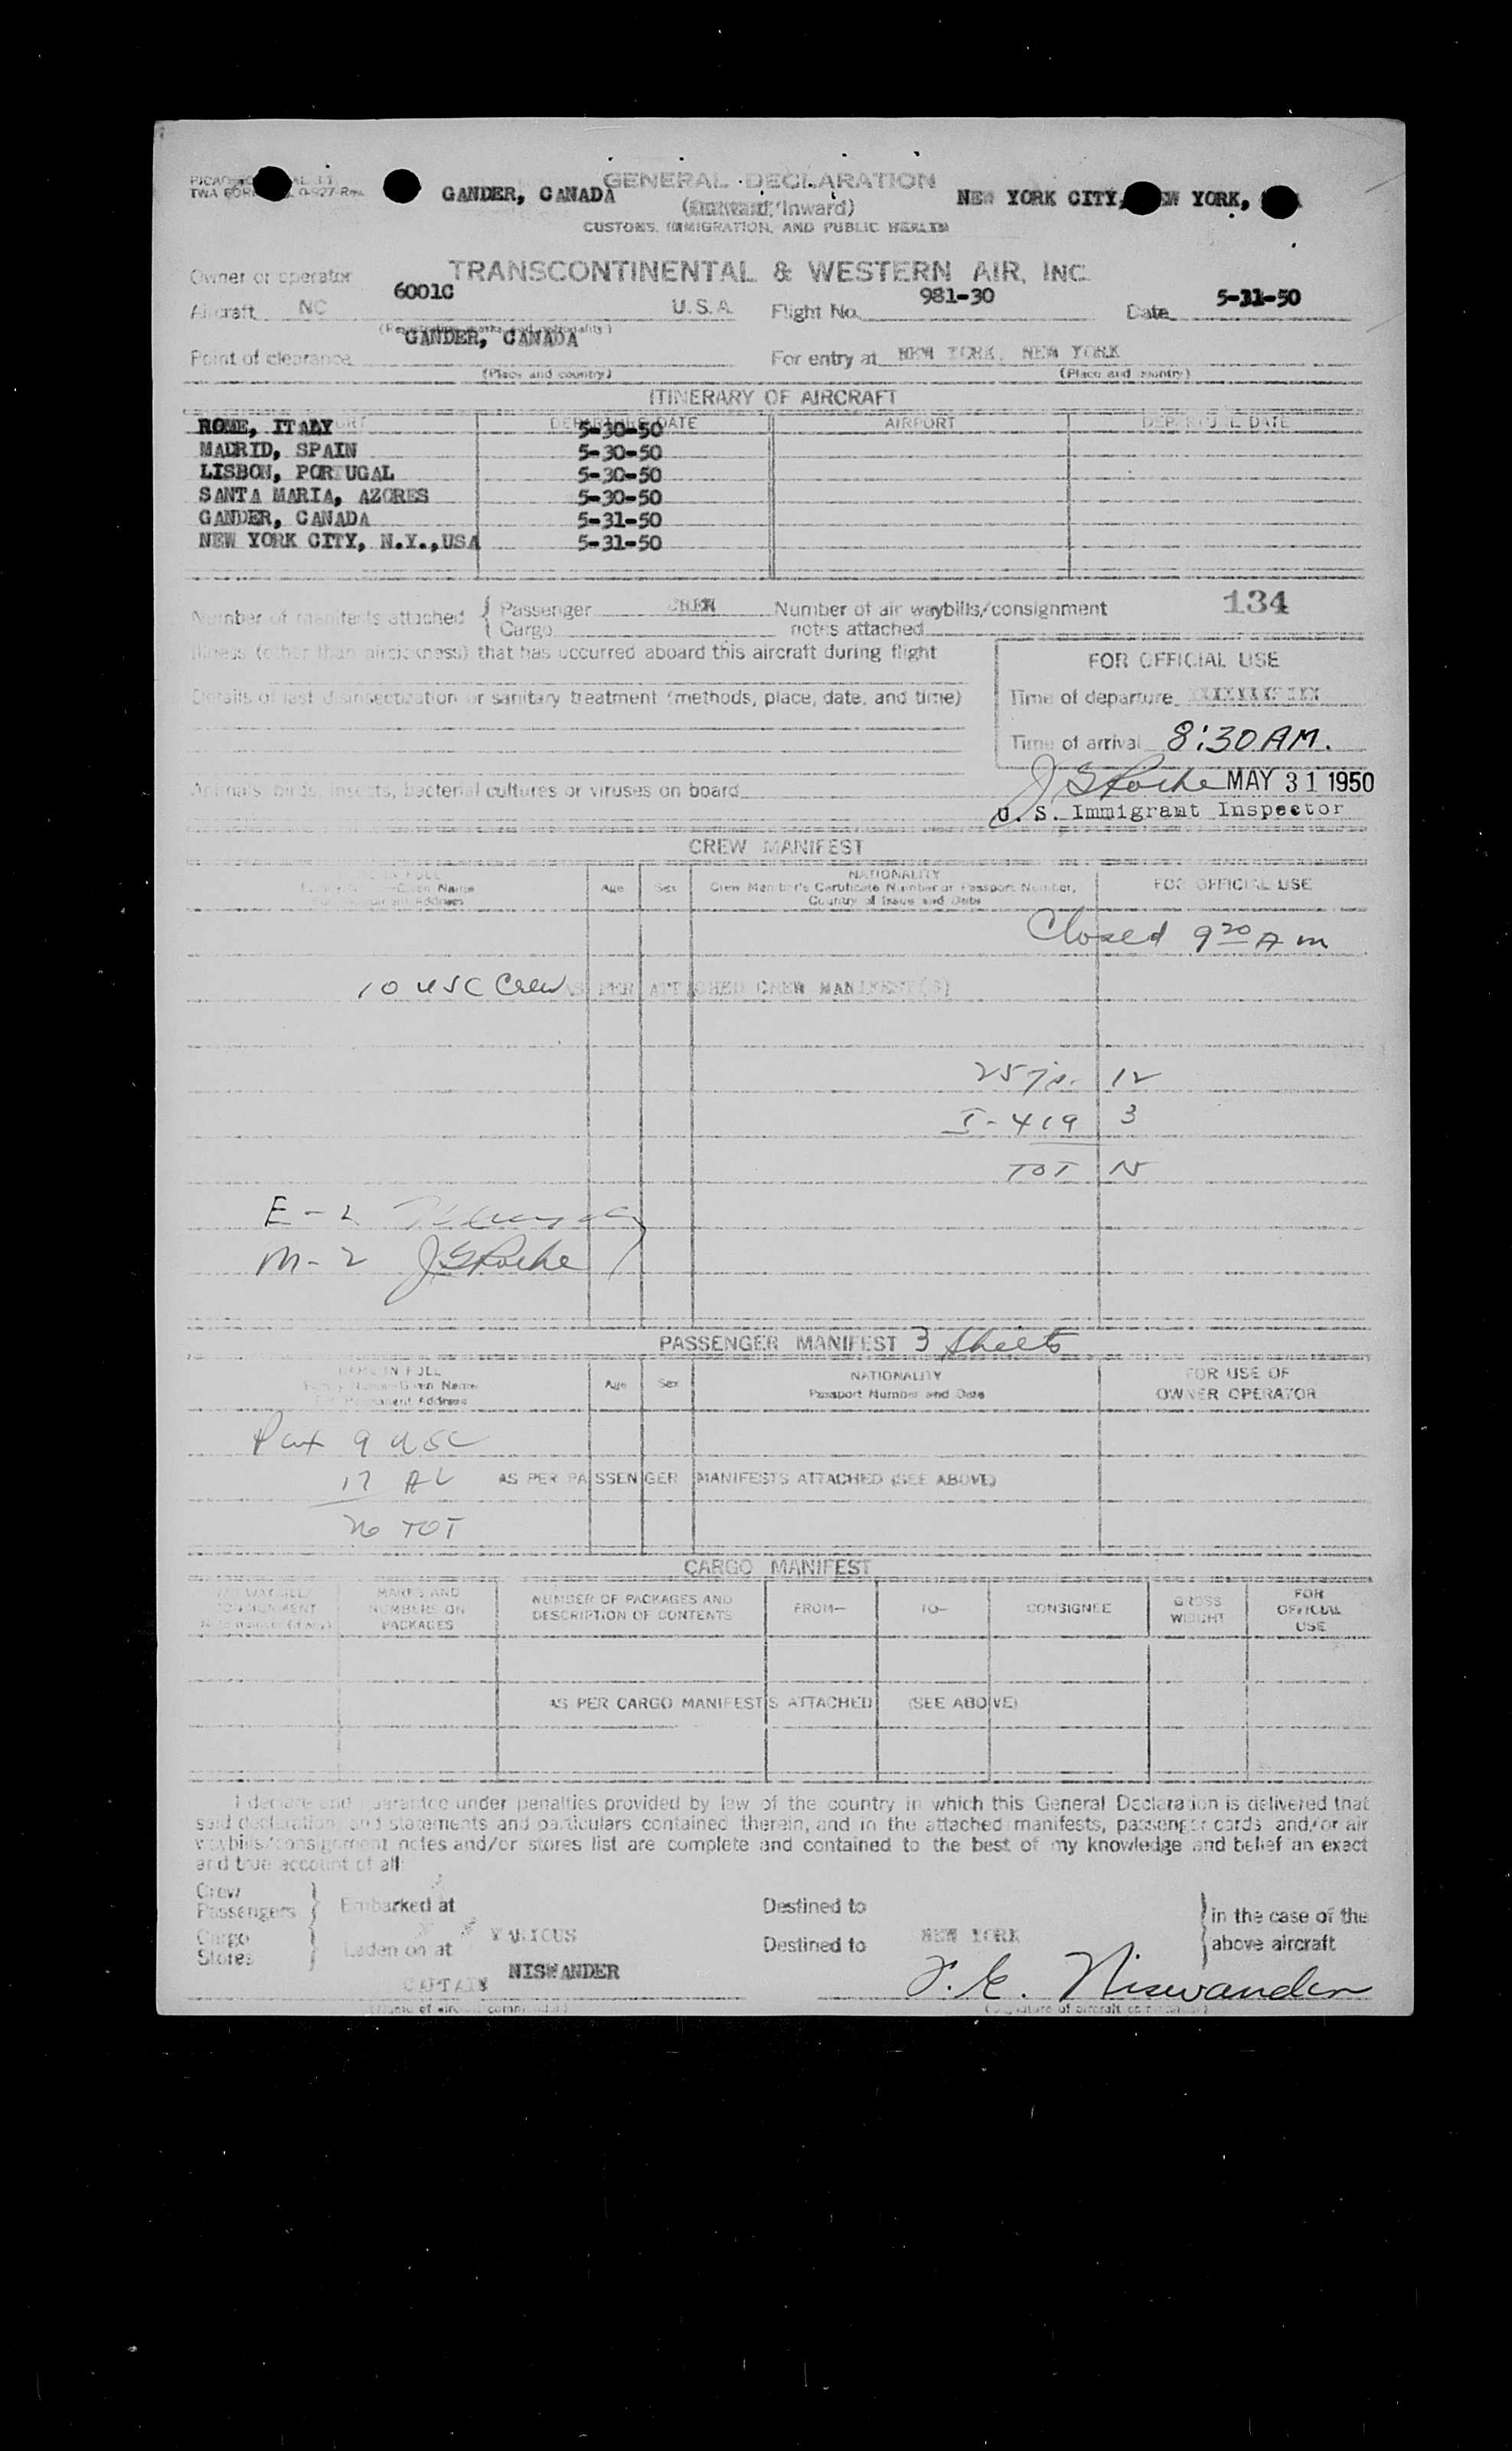 GANDER, CANADA GENERAL DECLARATION NEW YORK CITY, NEW YORK,
(Outward/Inward)
CUSTOMS, IMMIGRATION, AND PUBLIC HEALTH
Owner or operator TRANSCONTINENTAL & WESTERN AIR, INC.
Aircraft NC 6001C U.S.A. Flight No. 981-30 Date 5-31-50
(Registration marks and nationality)
Point of clearance GANDER, CANADA For entry at NEW YORK, NEW YORK
(Place and country) (Place and country)
ITINERARY OF AIRCRAFT
DEPARTURE DATE AIRPORT DEPARTURE DATE
ROME, ITALY 5-30-50
MADRID, SPAIN 5-30-50
LISBON, PORTUGAL 5-30-50
SANTA MARIA, AZORES 5-30-50
GANDER, CANADA 5-31-50
NEW YORK CITY, N.Y.,USA 5-31-50
Number of manifests attached { Passenger Number of air waybills/consignment 134
Cargo notes attached
Illness (other than airsickness) that has occurred aboard this aircraft during flight
FOR OFFICIAL USE
Details of last disinsectization or sanitary treatment (methods, place, date, and time)
Time of departure XXXXXXXXXXX
Time of arrival 8:30 AM.
Animals, birds, insects, bacterial cultures or viruses on board
J G Roche MAY 31 1950
U. S. Immigrant Inspector
CREW MANIFEST
NAME IN FULL
Family Name—Given Name
Full Permanent Address
Age Sex
NATIONALITY
Crew Member's Certificate Number or Passport Number,
Country of Issue and Date
FOR OFFICIAL USE
Closed 9 20 A m
10 USC Crew AS PER ATTACHED CREW MANIFEST(S)
12
I-419 3
TOT 15
E-2
M-2 J G Roche
PASSENGER MANIFEST 3 Sheets
NAME IN FULL
Family Name—Given Name
Full Permanent Address
Age Sex
NATIONALITY
Passport Number and Date
FOR USE OF
OWNER OPERATOR
Pax 9 USC
17 AL AS PER PASSENGER MANIFESTS ATTACHED (SEE ABOVE)
26 TOT
CARGO MANIFEST
MARKS AND
NUMBERS ON
PACKAGES
NUMBER OF PACKAGES AND
DESCRIPTION OF CONTENTS
FROM— TO— CONSIGNEE
GROSS
WEIGHT
FOR
OFFICIAL
USE
AS PER CARGO MANIFESTS ATTACHED (SEE ABOVE)
I declare and guarantee under penalties provided by law of the country in which this General Declaration is delivered that
said declaration, and statements and particulars contained therein, and in the attached manifests, passenger cards and/or air
waybills/consignment notes and/or stores list are complete and contained to the best of my knowledge and belief an exact
and true account of all:
Crew
Passengers } Embarked at Destined to } in the case of the
Cargo
Stores } Laden on at VARIOUS Destined to NEW YORK above aircraft
CAPTAIN NISWANDER
(Name of aircraft commander) (Signature of aircraft commander)
Niswander